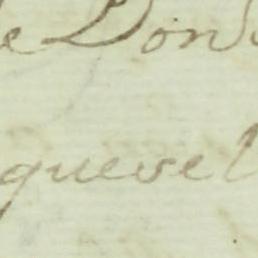 e Don
quevel